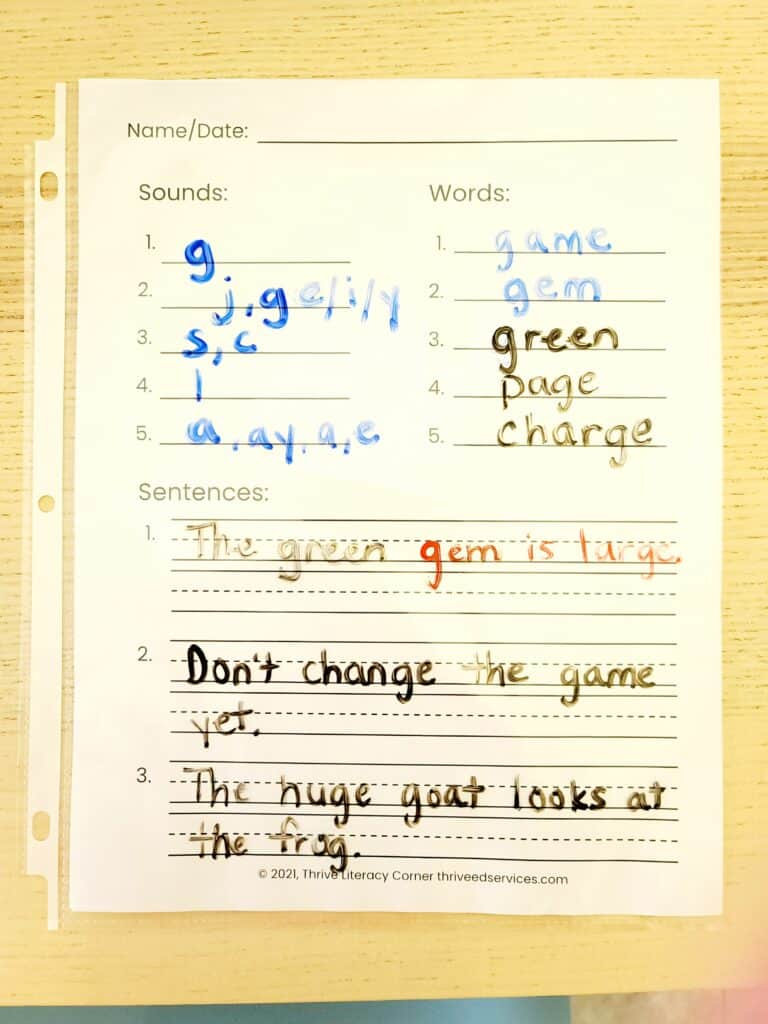 Name/Date:
Sounds:
1. g
2. j, g e/i/y
3. s, c
4. l
5. a, ay, a, e
Words:
1. game
2. gem
3. green
4. page
5. charge
Sentences:
1. The green gem is large.
2. Don't change the game
yet.
3. The huge goat looks at
the frog.
© 2021, Thrive Literacy Corner thriveedservices.com